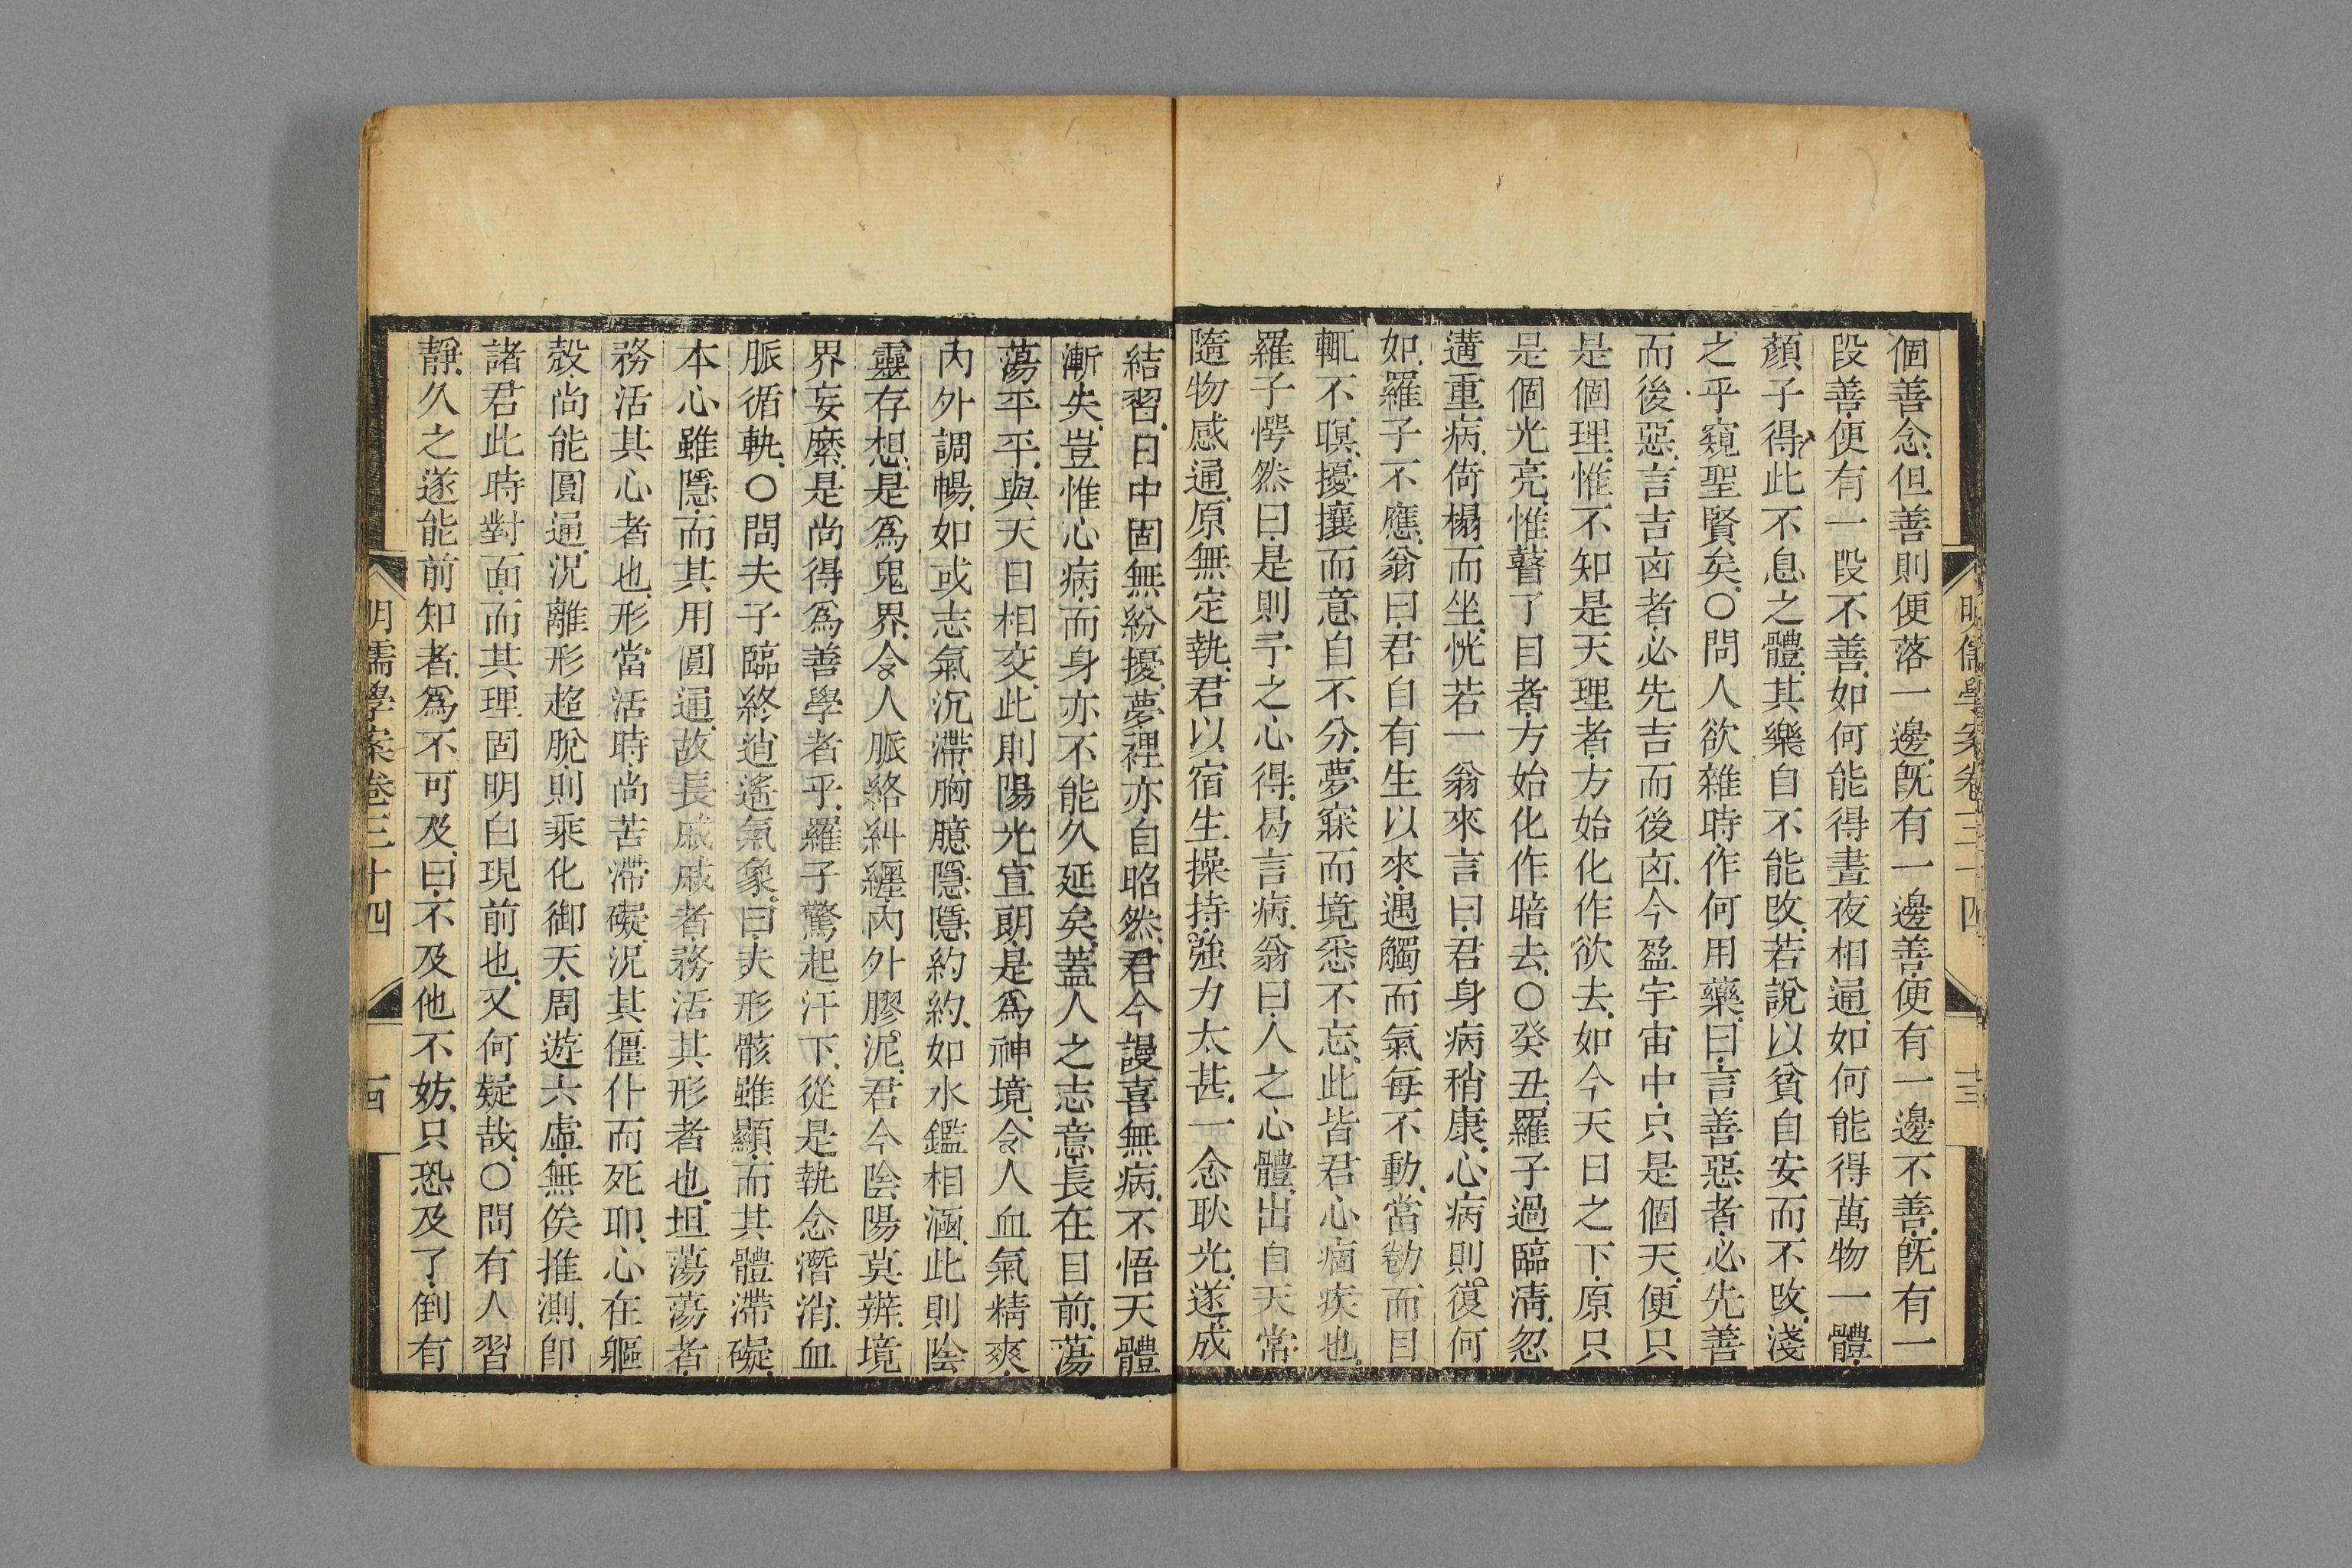 個善念但善則便落一邊既有一邊善便有一邊不善既有一
段善便有一段不善如何能得晝夜相通如何能得萬物一體
顏子得此不息之體其樂自不能改若說以貧自安而不改淺
之乎窺聖賢矣〇問人欲雜時作何用藥曰言善惡者必先善
而後惡言吉凶者必先吉而後凶今盈宇宙中只是個天便只
是個理惟不知是天理者方始化作欲去如今天日之下原只
是個光亮惟瞽了目者方始化作暗去〇癸丑羅子過臨清忽
遘重病倚榻而坐恍若一翁來言曰君身病稍康心病則復何
如羅子不應翁曰君自有生以來遇觸而氣每不動當勌而目
輒不瞑擾攘而意自不分夢寐而境悉不忘此皆君心痼疾也
羅子愕然曰是則予之心得曷言病翁曰人之心體出自天常
隨物感通原無定執君以宿生操持強力太甚一念耿光遂成
結習日中固無紛擾夢裡亦自昭然君今謾喜無病不悟天體
漸失豈惟心病而身亦不能久延矣蓋人之志意長在目前蕩
蕩平平與天日相交此則陽光宣朗是爲神境令人血氣精爽
內外調暢如或志氣沉滯胸臆隱隱約約如水鑑相涵此則陰
靈存想是爲鬼界令人脈絡糾纏內外膠泥君今陰陽莫辨境
界妄縻是尚得爲善學者乎羅子驚起汗下從是執念潛消血
脈循軌〇問夫子臨終逍遙氣象曰夫形骸雖顯而其體滯礙
本心雖隱而其用圓通故長戚戚者務活其形者也坦蕩蕩者
務活其心者也形當活時尚苦滯礙況其僵仆而死耶心在軀
殼尚能圓通況離形超脫則乘化御天周遊六虛無俟推測即
諸君此時對面而其理固明白現前也又何疑哉〇問有人習
靜久之遂能前知者爲不可及曰不及他不妨只恐及了倒有
明儒學案卷三十四
明儒學案卷三十四